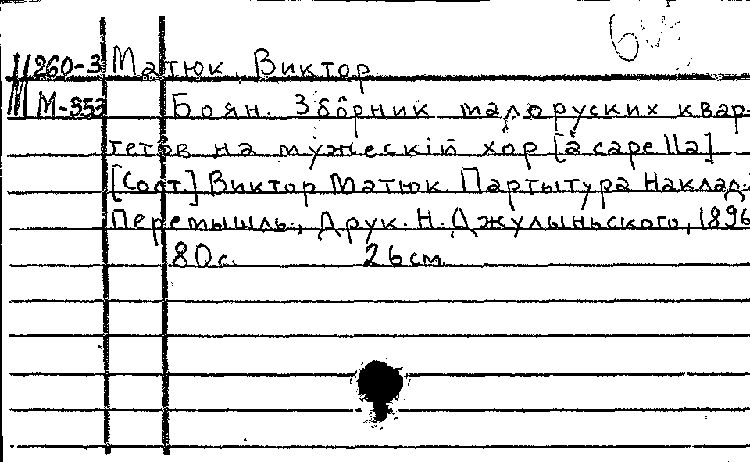 Ш260-3 Матюк Виктор
М-353 Боян. Зборник малоруских квар-
тетôв на мужескій хор [à capella]
[Сост.] Виктор Матюк Партытура Наклад.
Перемышль, Друк. Н. Джулыньского, 1896
80с. 26см